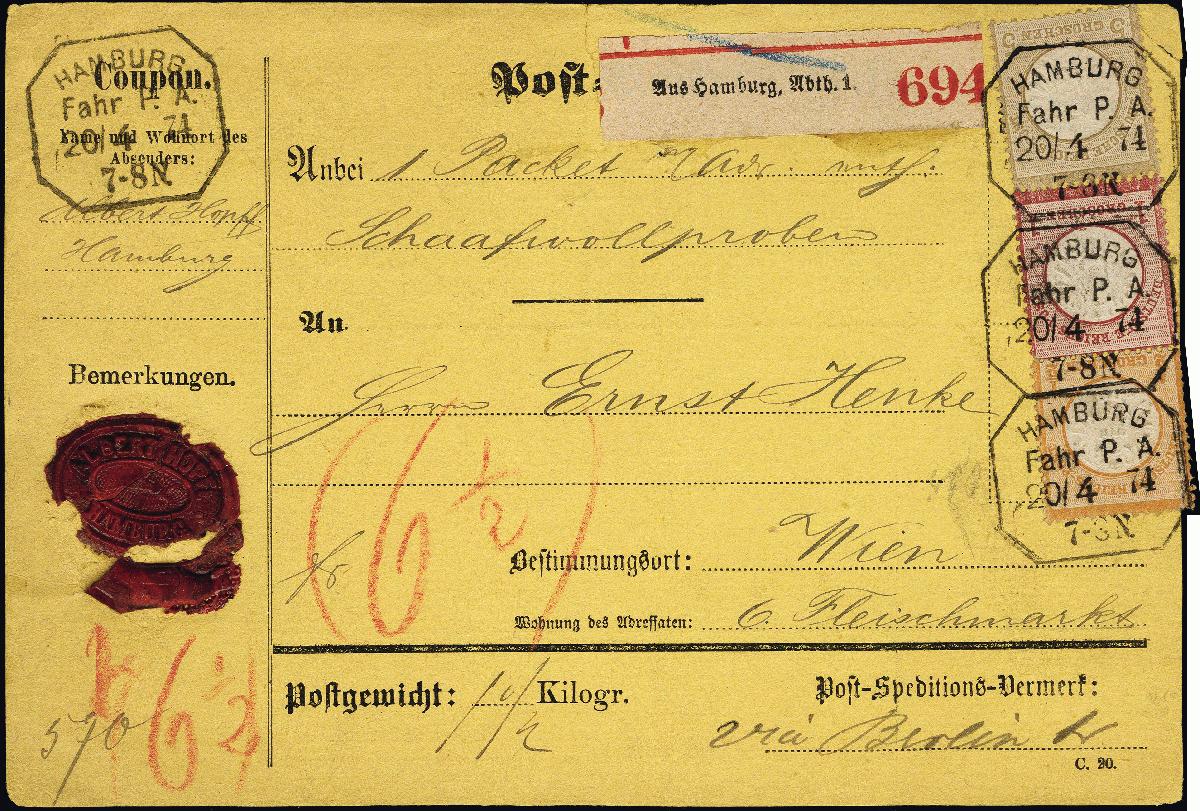 HAMBURG
Fahr P. A.
20/4 74
7-8N
Coupon.
Name und Wohnort des
Absenders:
Albert Hopff
Hamburg
Bemerkungen.
ALBERT HOPFF
HAMBURG
6 1/2
570
Post-
Aus Hamburg, Abth. 1.
694
Anbei 1 Packet Adr. enth.
Schaafwollproben
An
Herrn Ernst Henke
(6 1/2)
fr.
Bestimmungsort: Wien
Wohnung des Adressaten: 6. Fleischmarkt
Postgewicht: Kilogr.
Post-Speditions-Vermerk:
via Berlin
C. 20.
GROSCHEN
HAMBURG
Fahr P. A.
20/4 74
7-8N
GROSCHEN
HAMBURG
Fahr P. A.
20/4 74
7-8N
HAMBURG
Fahr P. A.
20/4 74
7-8N